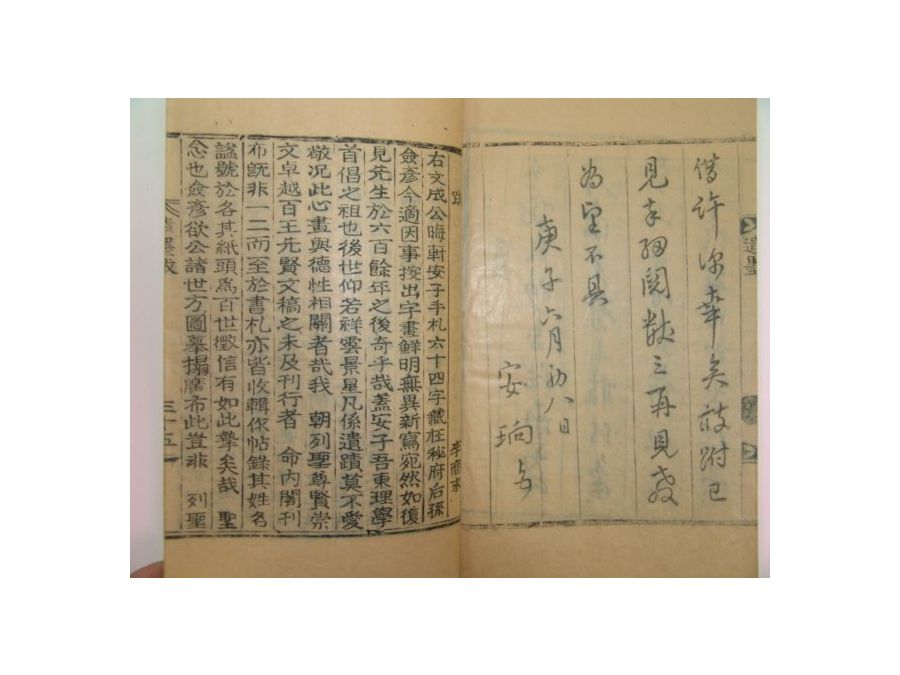 遺墨
借許深幸矣 改附已
見本細閱 數三再見 教
為望不具
庚子六月初八日
安珦 与
跋 李商永
右文成公晦軒安子手札六十四字藏在秘府后孫
僉彥今適因事按出字畫鮮明無異新寫宛然如復
見先生於六百餘年之後奇乎哉盖安子吾東理學
首倡之祖也後世仰若祥雲景星凡係遺蹟莫不愛
敬况此心畫與德性相關者哉我 朝列聖尊賢崇
文卓越百王先賢文稿之未及刊行者 命內閣刊
布旣非一二而至於書札亦皆收輯作帖錄其姓名
諡號於各其紙頭爲百世徵信有如此摯矣哉 聖
念也僉彥欲公諸世方圖摹搨廣布此豈非 列聖
遺墨跋
三十五